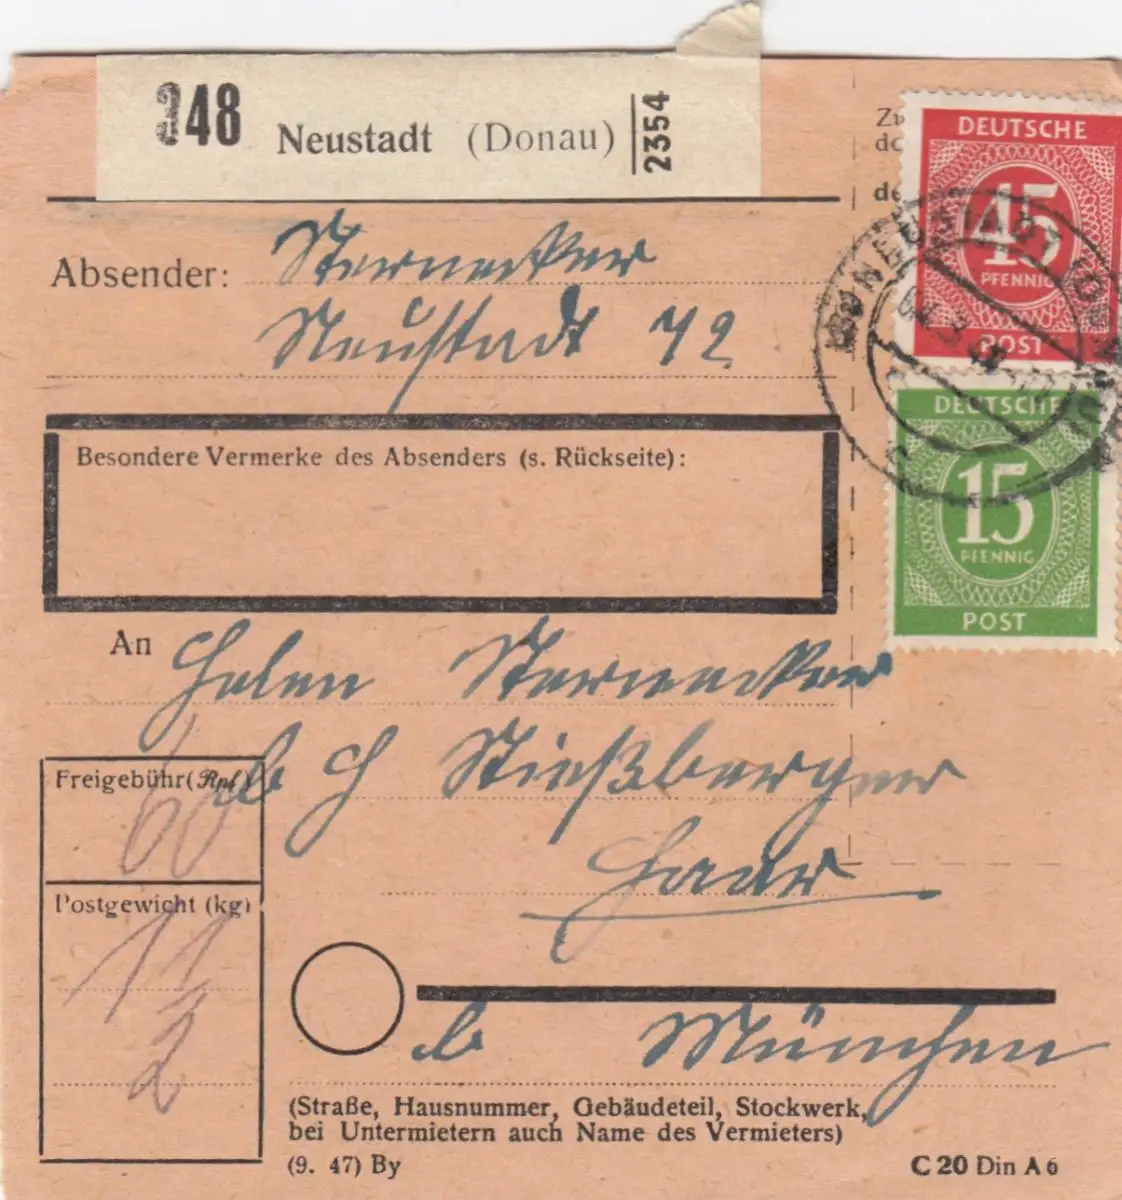 348 Neustadt (Donau) 2354
Zu
dc
de
Absender: Sternecker
Neustadt 72
DEUTSCHE
45
PFENNIG
POST
NEUSTADT (DONAU)
DEUTSCHE
15
PFENNIG
POST
Besondere Vermerke des Absenders (s. Rückseite):
An Helen Sternecker
b H Stießberger
Freigebühr (Rpf)
60
Haar
Postgewicht (kg)
1 1/2
b München
(Straße, Hausnummer, Gebäudeteil, Stockwerk,
bei Untermietern auch Name des Vermieters)
(9. 47) By C 20 Din A 6